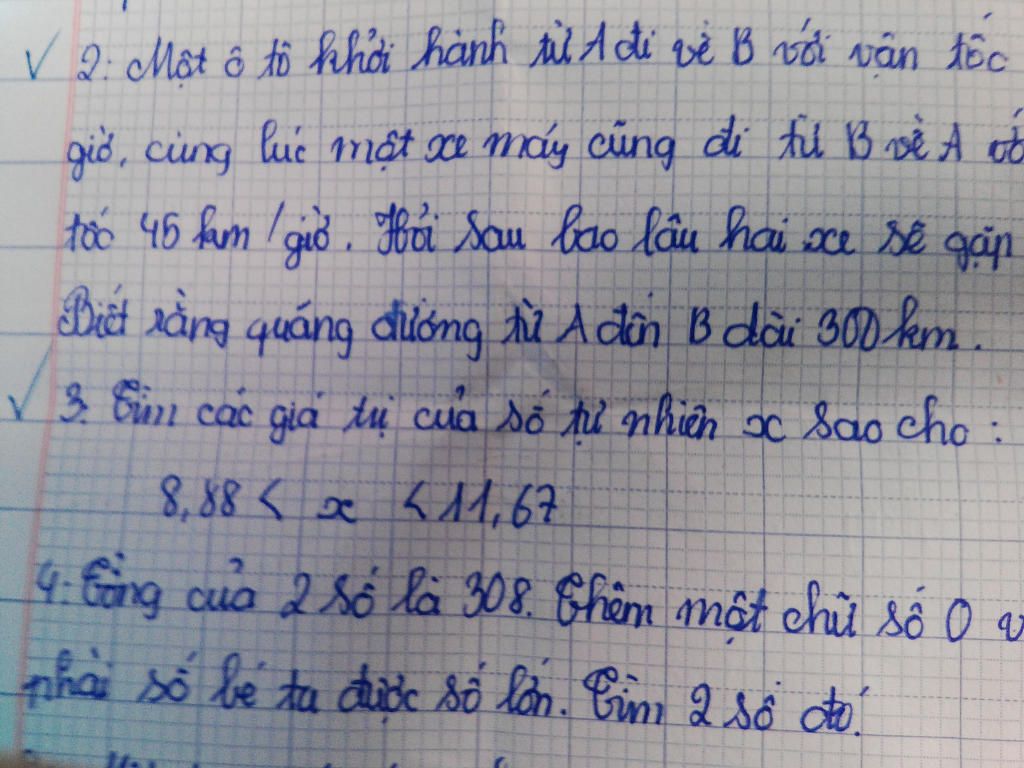 2. Một ô tô khởi hành từ A đi về B với vận tốc
giờ, cùng lúc một xe máy cũng đi từ B về A
tốc 45 km/giờ. Hỏi sau bao lâu hai xe sẽ gặp
Biết rằng quãng đường từ A đến B dài 300 km.
3. Tìm các giá trị của số tự nhiên x sao cho:
8,88 < x < 11,67
4. Tổng của 2 số là 308. Thêm một chữ số 0
phải số bé ta được số lớn. Tìm 2 số đó.